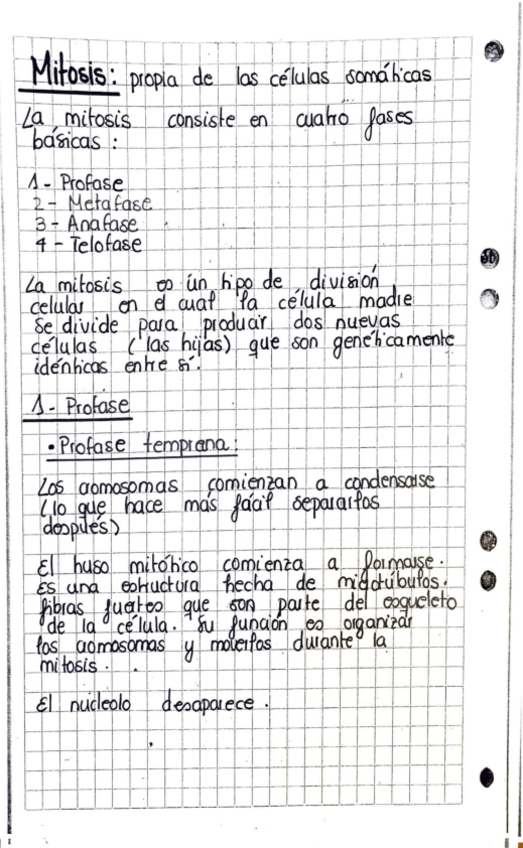 Mitosis: propia de las células somáticas
La mitosis consiste en cuatro fases
básicas:
1- Profase
2- Metafase
3- Anafase
4- Telofase
La mitosis es un tipo de división
celular en el cual la célula madre
se divide para producir dos nuevas
células (las hijas) que son genéticamente
idénticas entre sí.
1- Profase
• Profase temprana:
Los cromosomas comienzan a condensarse
(lo que hace más fácil separarlos
después)
El huso mitótico comienza a formarse.
Es una estructura hecha de microtúbulos.
fibras fuertes que son parte del esqueleto
de la célula. Su función es organizar
los cromosomas y moverlos durante la
mitosis.
El nucleolo desaparece.